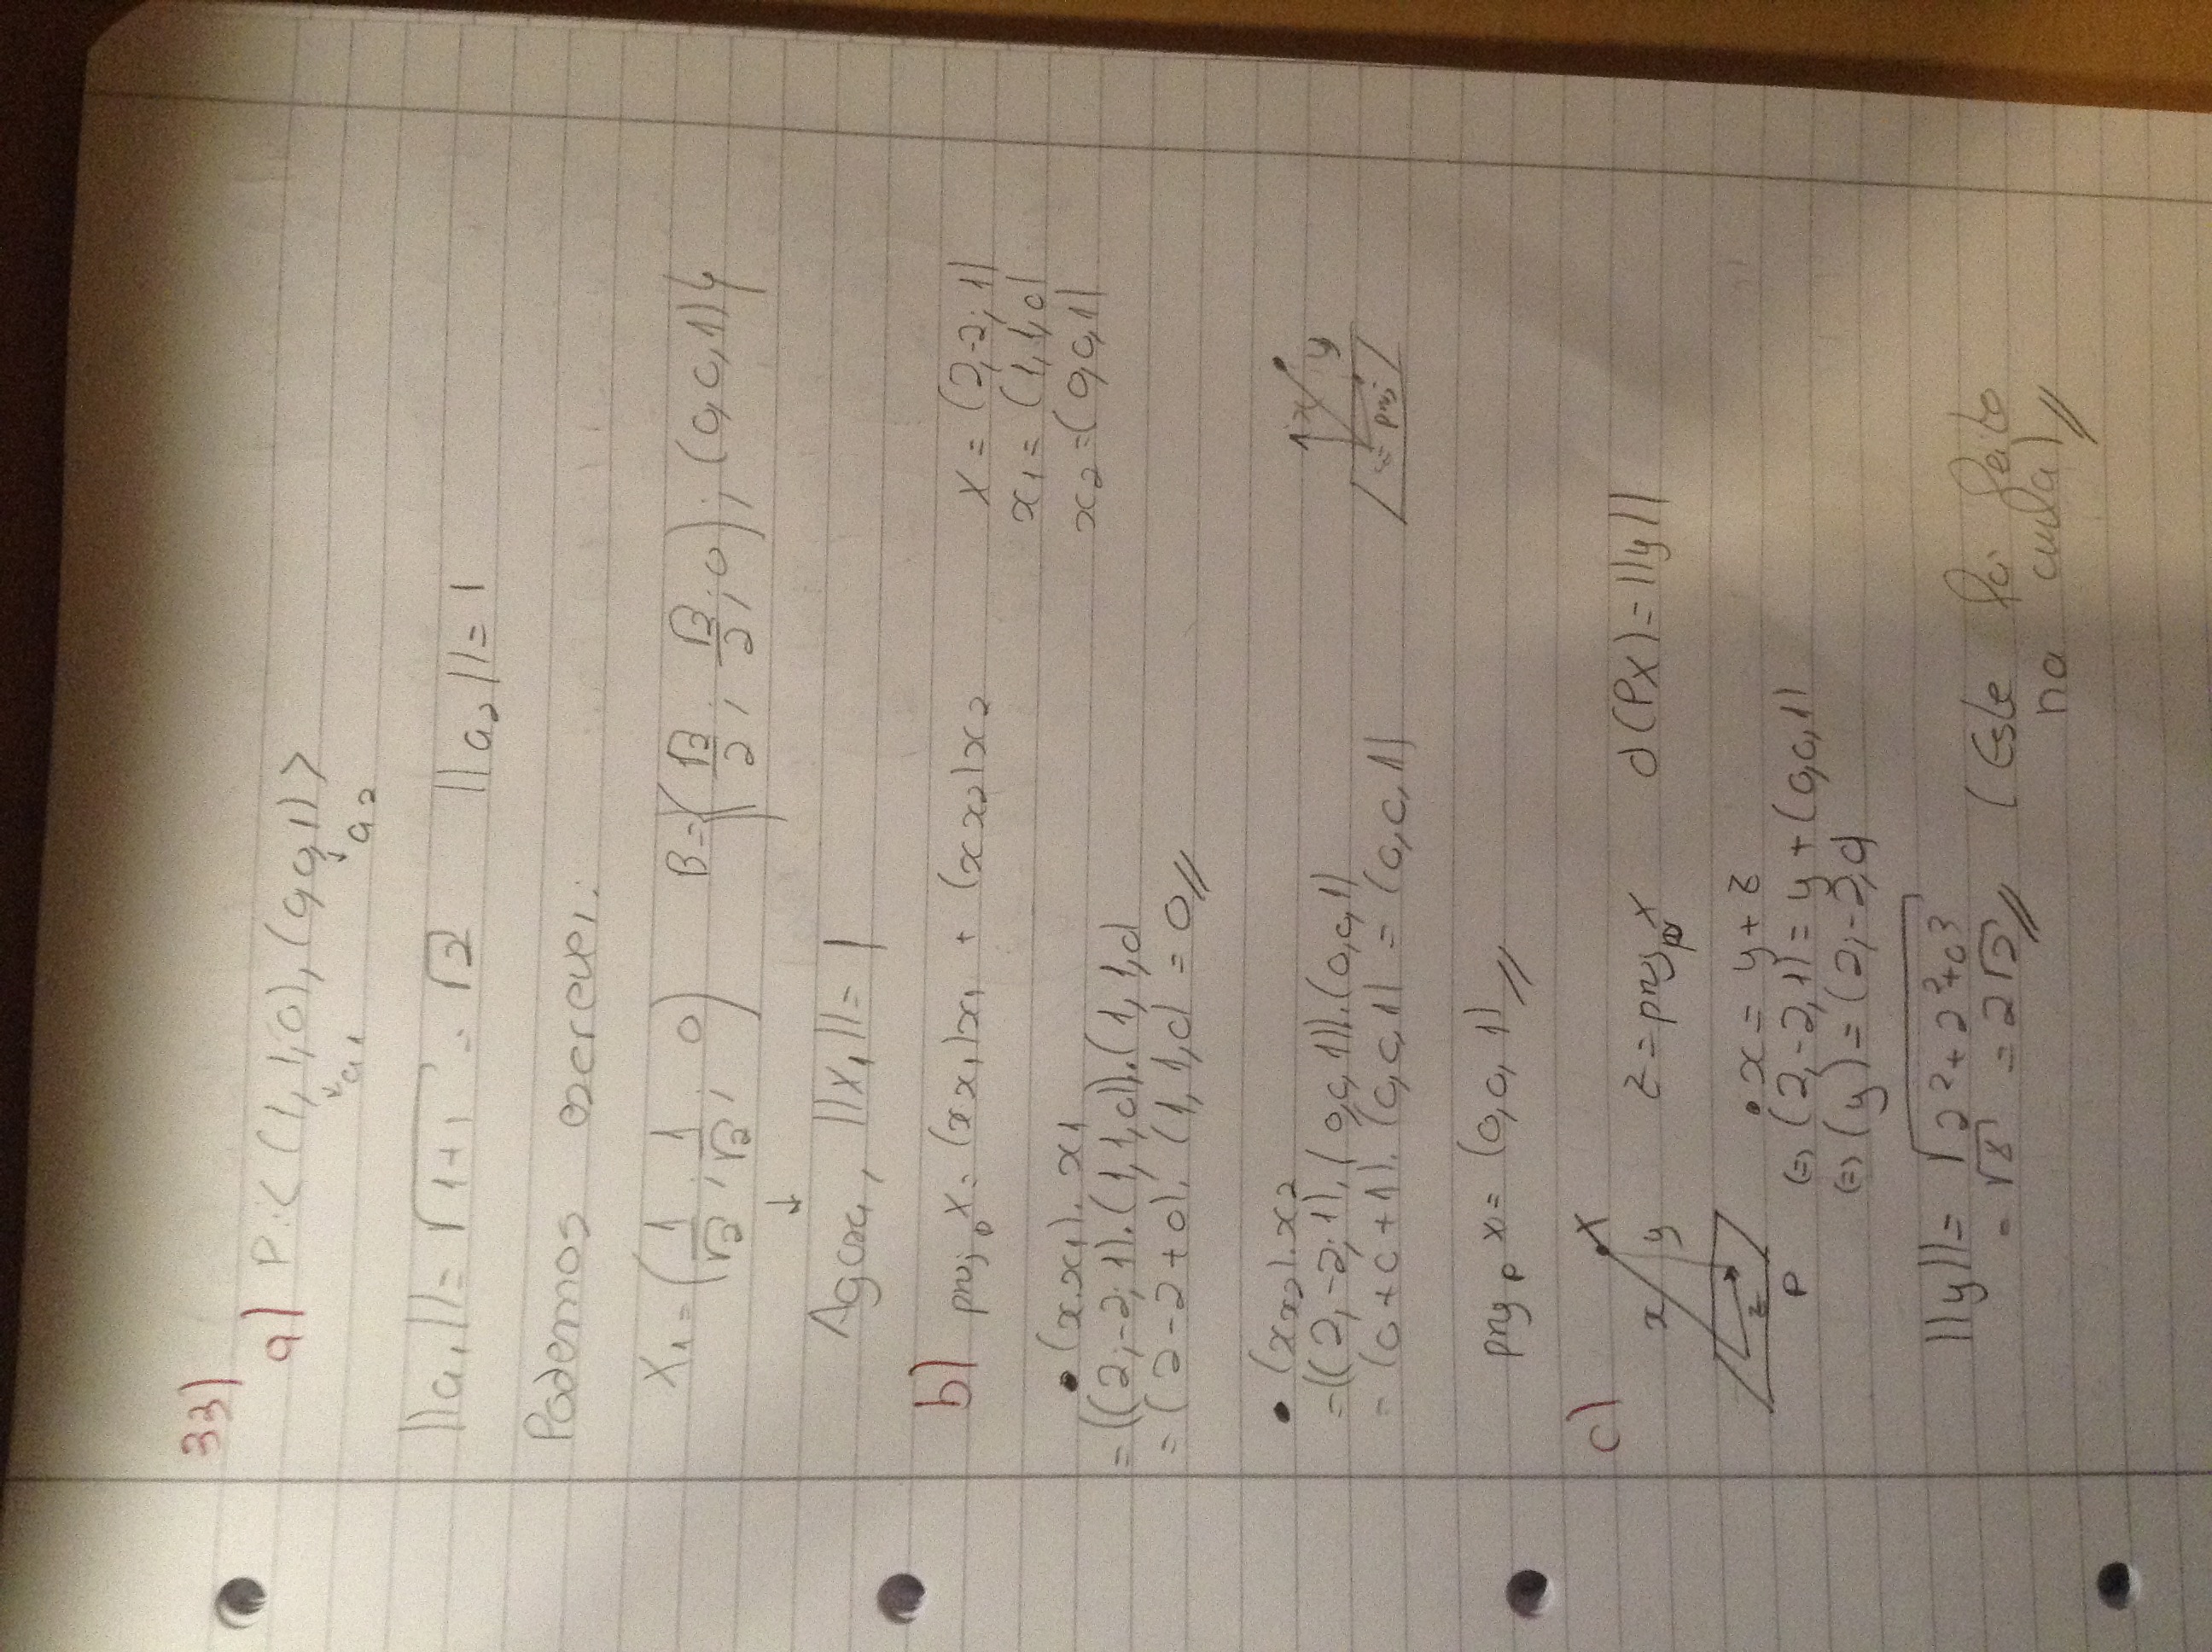 33)
a) P:< (1,1,0), (0,0,1) >
↓a1 ↓a2
||a1|| = √1+1 = √2 ||a2|| = 1
Podemos escrever:
X1 = (1/√2 ; 1/√2 ; 0) B={(√2/2 ; √2/2 ; 0) ; (0,0,1)}
↓
Agora, ||X1|| = 1
b) projp X = (x x1)x1 + (x x2)x2 X = (2,-2; 1)
x1 = (1,1,0)
x2 = (0,0,1)
• (x.x1). x1
= ((2;-2;1).(1,1,0)).(1,1,0
= (2-2+0). (1,1,0) = 0//
• (x x2).x2
=((2,-2;1).(0,0,1)).(0,0,1)
= (0+0+1). (0,0,1) = (0,0,1)
x y
z= proj
projp x = (0,0,1)//
c) X
x y z = projp x d(PX) = ||y||
z
P
• x = y + z
(=) (2,-2,1) = y + (0,0,1)
(=) (y) = (2;-2,0)
||y|| = √2²+2²+0²
= √8 = 2√2// (Este foi feito
na aula)//